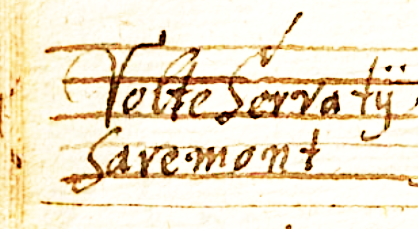 Volte Servatij
Saremont